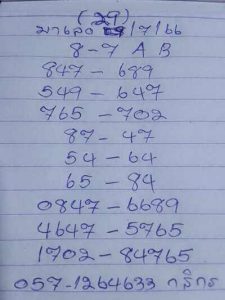 (29)
มาเลย์ /7/66
8-7 A B
847 - 689
549 - 647
765 - 702
87 - 47
54 - 64
65 - 84
0847 - 6689
4647 - 5765
1702 - 84765
057-1264633 กสิกร